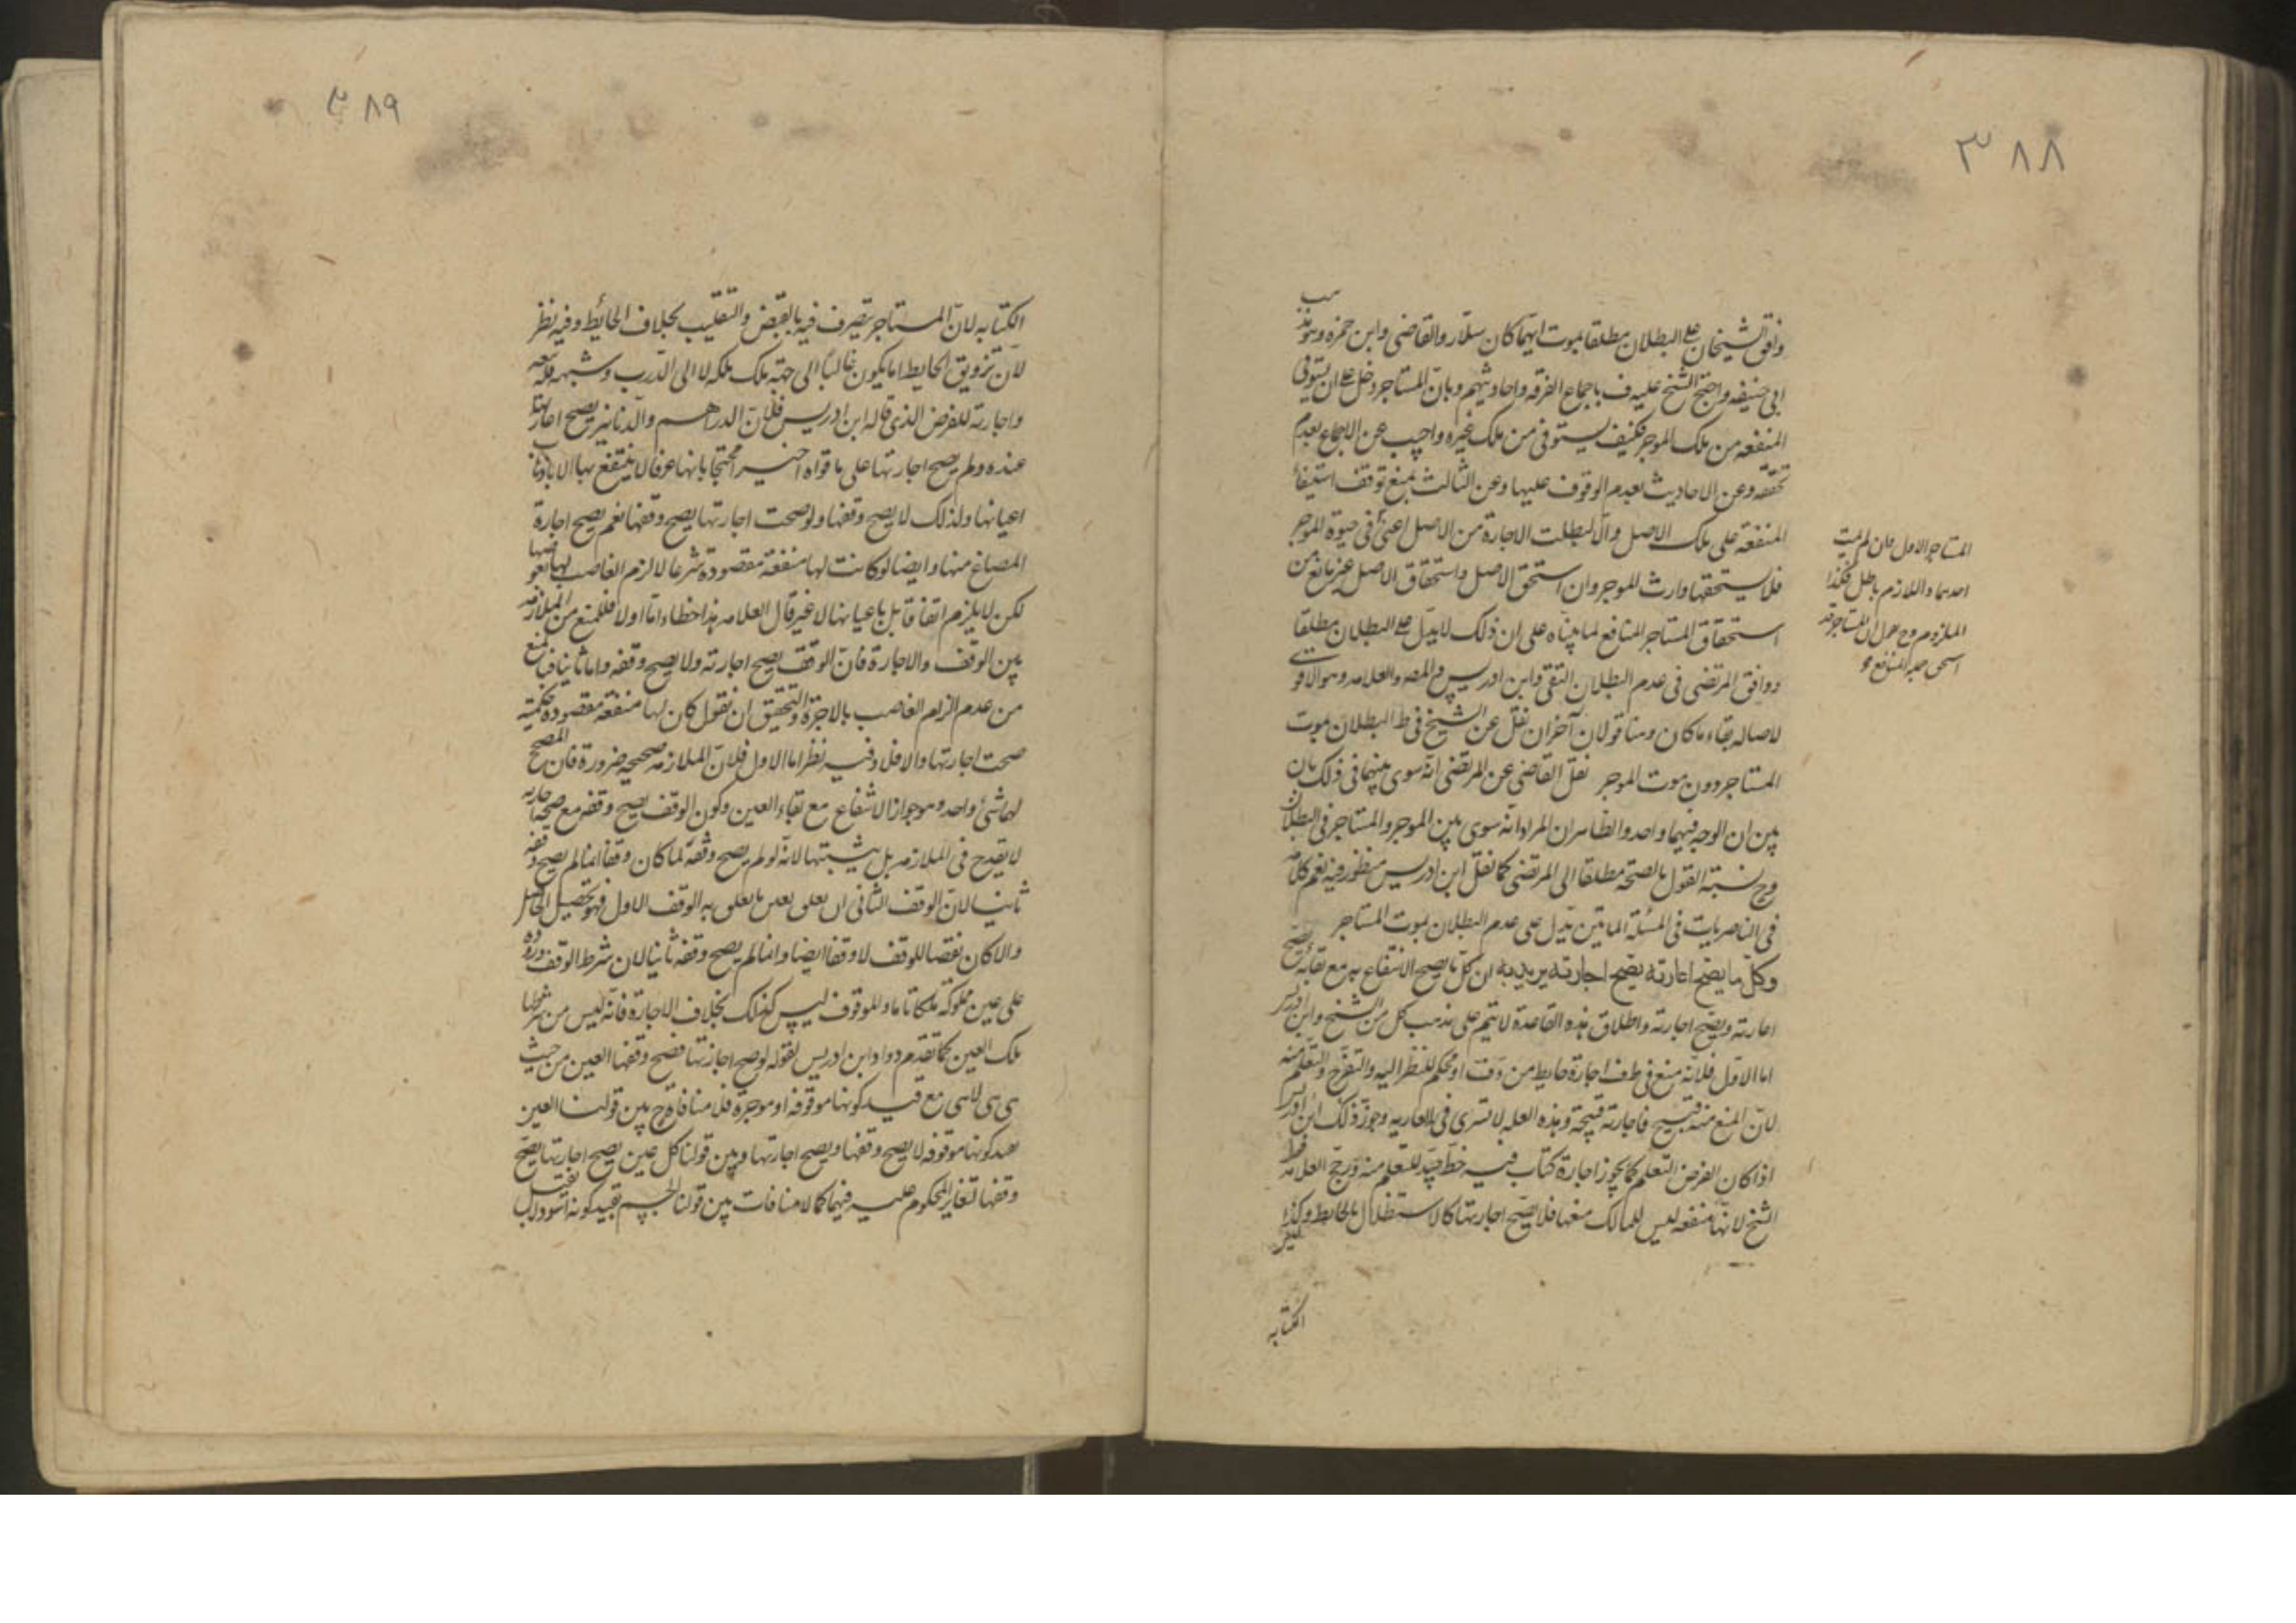 ٣٨٨
وافق الشيخان على البطلان مطلقا بموت ايهما كان سلار والقاضى وابن حمزه وهو مذهب
ابى حنيفه واحتج الشيخ عليه ف باجماع الفرقه واحاديثهم وبان المستاجر دخل على ان يستوفى
المنفعه من ملك الموجر فكيف يستوفى من ملك غيره واجيب عن الاجماع بعدم
تحققه وعن الاحاديث بعدم الوقوف عليها وعن الثالث بمنع توقف استيفاء
المنفعة على ملك الاصل والا لبطلت الاجارة من الاصل اعنى فى حيوة الموجر
فلا يستحقها وارث للموجر وان استحق الاصل واستحقاق الاصل غير مانع من
استحقاق المستاجر المنافع لما بيناه على ان ذلك لا يدل على البطلان مطلقا
ووافق المرتضى فى عدم البطلان التقى وابن ادريس والمصه والعلامه وهو الاقوى
لاصاله بقاء ما كان وهنا قولان آخران نقل عن الشيخ فى ط البطلان بموت
المستاجر دون موت الموجر نقل القاضى عن المرتضى انه سوى بينهما فى ذلك بان
بين ان الوجه فيهما واحد والظاهر ان المراد انه سوى بين الموجر والمستاجر فى البطلان
وح نسبة القول بالصحة مطلقا الى المرتضى كما نقل ابن ادريس منظور فيه نعم كلامه
فى الناصريات فى المسئلة المايتين يدل على عدم البطلان بموت المستاجر
وكل ما يصح اعارته يصح اجارته يريد به ان كل ما يصح الانتفاع به مع بقائه يصح
اعارته ويصح اجارته واطلاق هذه القاعدة لا يتم على مذهب كل من الشيخ وابن ادريس
اما الاول فلانه منع فى ط ف اجارة حايط مزوق او محكم للنظر اليه والتفرج والتعلم منه
لان المنع منه قبيح فاجارته قبيحة وهذه العله لا تسرى فى العاريه وجوز ذلك ابن ادريس
اذا كان الغرض التعلم كما يجوز اجارة كتاب فيه خط جيد للتعلم منه ورجح العلامه قول
الشيخ لانها منفعه ليس للمالك منعها فلا يصح اجارتها كالاستظلال بالحايط وكذا ليس
الكتابه
المستاجر الاول فان لم يمت
احدهما واللازم باطل فكذا
الملزوم وح نقول ان المستاجر قد
٣٨٩
الكتابه لان المستاجر يتصرف فيه بالقبض والتقليب بخلاف الحائط وفيه نظر
لان تزويق الحايط اما يكون غالبا الى جهة ملك ملكه لا الى الدرب وشبهه فله منعه
واجارته للغرض الذى قاله ابن ادريس فلان الدراهم والدنانير يصح اعارتها
عنده ولم يصح اجارتها على ما قواه اخيرا محتجا بانها عرفا لا ينتفع بها الا باذهاب
اعيانها ولذلك لا يصح وقفها ولو صحت اجارتها يصح وقفها نعم يصح اجارة
المصاغ منها وايضا لو كانت لها منفعة مقصودة شرعا لالزم الغاصب لها بعوضها
لكن لا يلزم اتفاقا بل باعيانها لا غير قال العلامه هذا خطاء اما اولا فللمنع من الملازمه
بين الوقف والاجارة فان الوقف يصح اجارته ولا يصح وقفه واما ثانيا فبالمنع
من عدم الزام الغاصب بالاجرة والتحقيق ان نقول كان لها منفعة مقصودة حكمية
صحت اجارتها والا فلا وفيه نظر اما الاول فلان الملازمه صحيحه ضرورة فان المصحح
لهما شئ واحد وهو جواز الانتفاع مع بقاء العين وكون الوقف يصح وقفه مع صحة اجارته
لا يقدح فى الملازمه بل يثبتها لانه لو لم يصح وقفه لما كان وقفا انما لم يصح وقفه
ثانيا لان الوقف الثانى ان تعلق بعين ما تعلق به الوقف الاول فهو تحصيل الحاصل
والا كان نقضا للوقف لا وقفا ايضا وانما لم يصح وقفه ثانيا لان شرط الوقف وروده
على عين مملوكة ملكا تاما والموقوف ليس كذلك بخلاف الاجارة فانه ليس من شرطها
ملك العين كما تقدم ومراد ابن ادريس بقوله لو صح اجارتها فصح وقفها العين من حيث
هى هى لا هى مع قيد كونها موقوفه او موجرة فلا منافاة ح بين قولنا العين
بقيد كونها موقوفه لا يصح وقفها ويصح اجارتها وبين قولنا كل عين يصح اجارتها يصح
وقفها لتغاير المحكوم عليه فيهما كما لا منافات بين قولنا الجسم بقيد كونه اسود لا يقبل